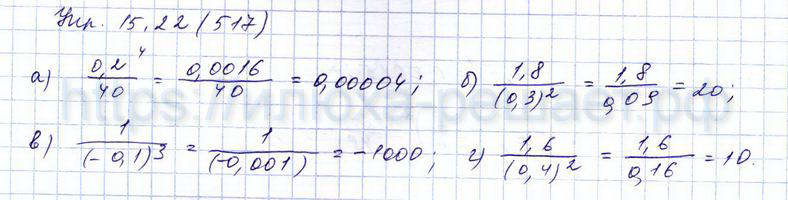 Упр. 15.22 (517)
а) 0,2⁴/40 = 0,0016/40 = 0,00004; б) 1,8/(0,3)² = 1,8/0,09 = 20;
в) 1/(-0,1)³ = 1/(-0,001) = -1000; г) 1,6/(0,4)² = 1,6/0,16 = 10.
https://илюха-решает.рф